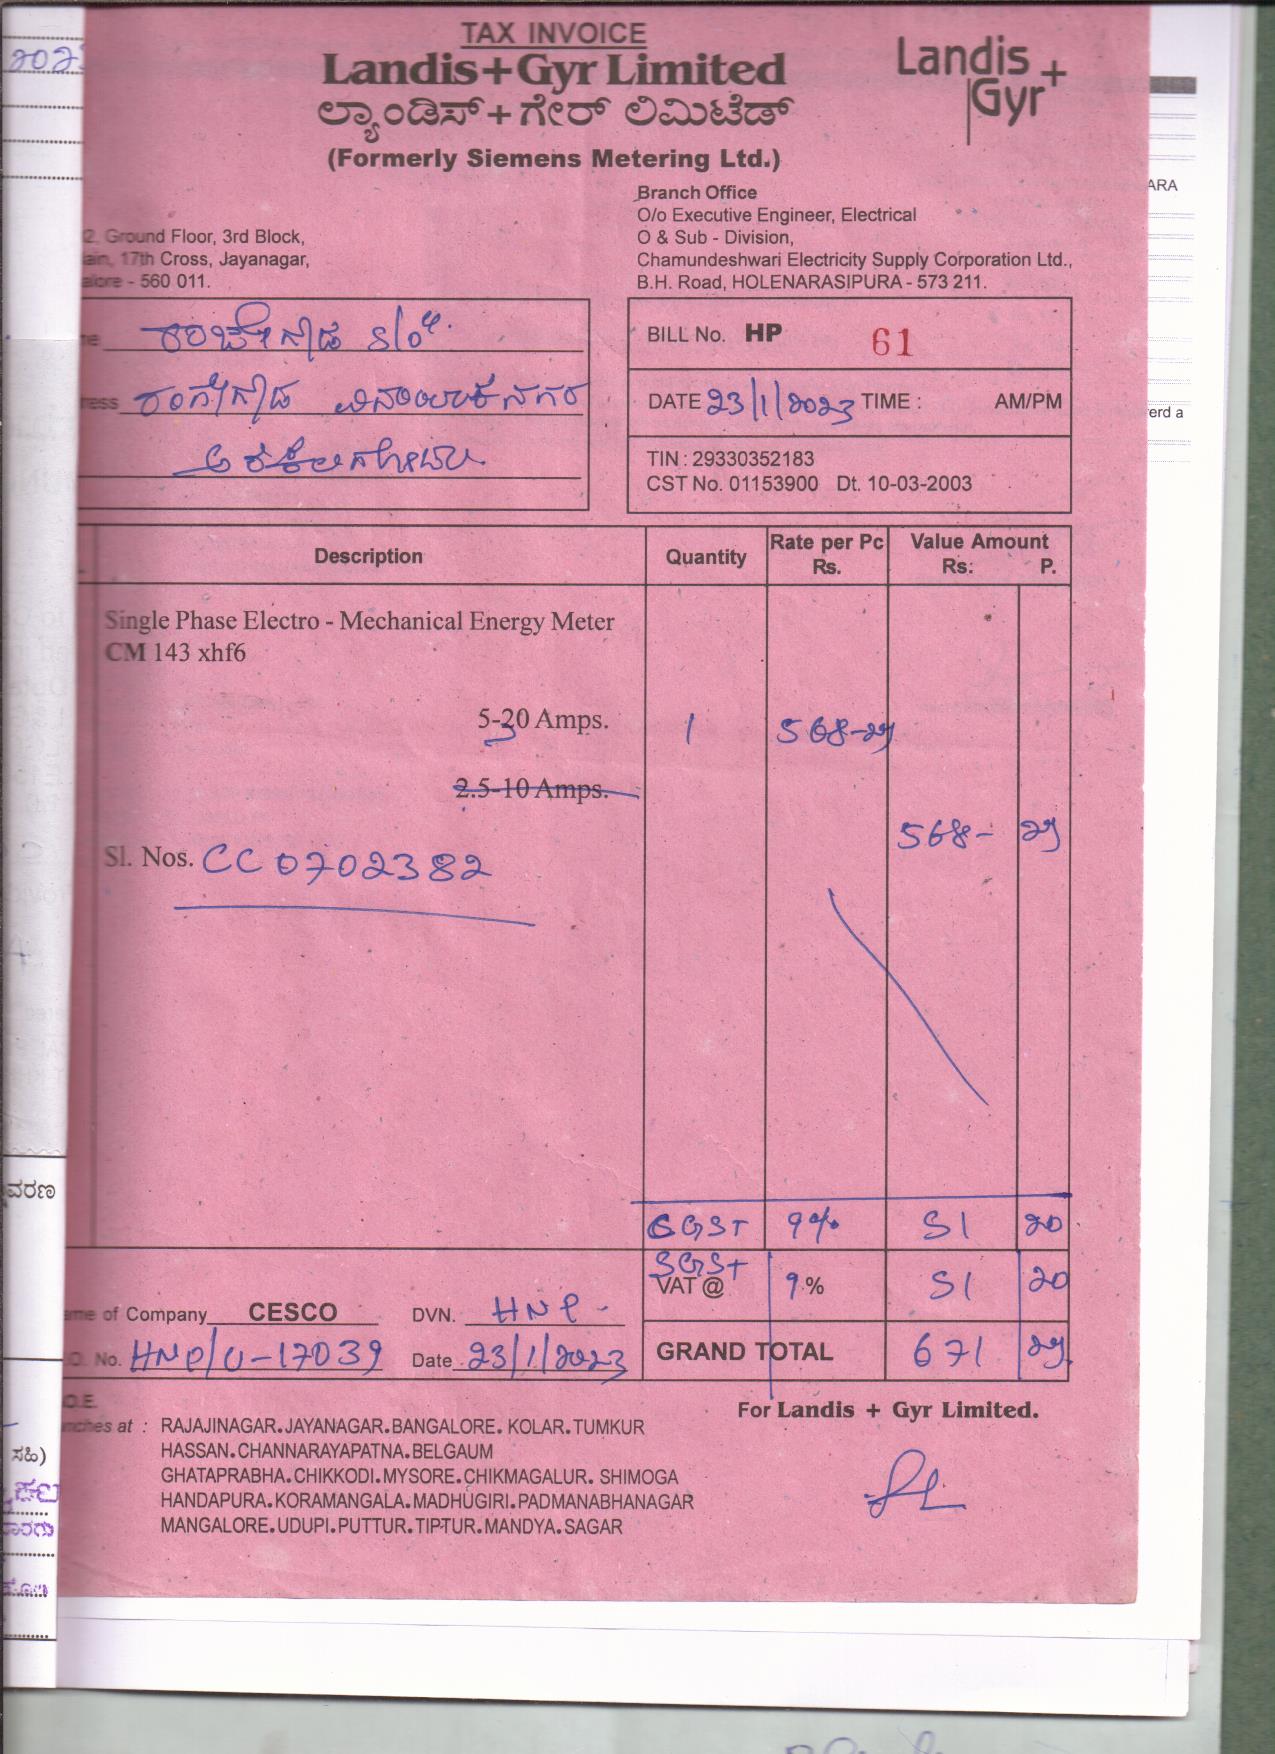 TAX INVOICE
Landis+Gyr Limited
ಲ್ಯಾಂಡಿಸ್+ಗೇರ್ ಲಿಮಿಟೆಡ್
(Formerly Siemens Metering Ltd.)
Landis + Gyr +
Ground Floor, 3rd Block,
17th Cross, Jayanagar,
- 560 011.
Branch Office
O/o Executive Engineer, Electrical
O & Sub - Division,
Chamundeshwari Electricity Supply Corporation Ltd.,
B.H. Road, HOLENARASIPURA - 573 211.
S/o
BILL No. HP 61
DATE 23/1/2023 TIME : AM/PM
TIN : 29330352183
CST No. 01153900 Dt. 10-03-2003
Description Quantity Rate per Pc Rs. Value Amount Rs: P.
Single Phase Electro - Mechanical Energy Meter
CM 143 xhf6
5-30 Amps. 1 568-29
2.5-10 Amps.
568- 29
Sl. Nos. CC0702382
CGST 9% 51 20
SGST
VAT @ 9% 51 20
Company CESCO DVN. HNP
No. HNP/U-17039 Date 23/1/2023
GRAND TOTAL 671 29
For Landis + Gyr Limited.
at : RAJAJINAGAR.JAYANAGAR.BANGALORE. KOLAR.TUMKUR
HASSAN.CHANNARAYAPATNA.BELGAUM
GHATAPRABHA.CHIKKODI.MYSORE.CHIKMAGALUR. SHIMOGA
HANDAPURA.KORAMANGALA.MADHUGIRI.PADMANABHANAGAR
MANGALORE.UDUPI.PUTTUR.TIPTUR.MANDYA.SAGAR